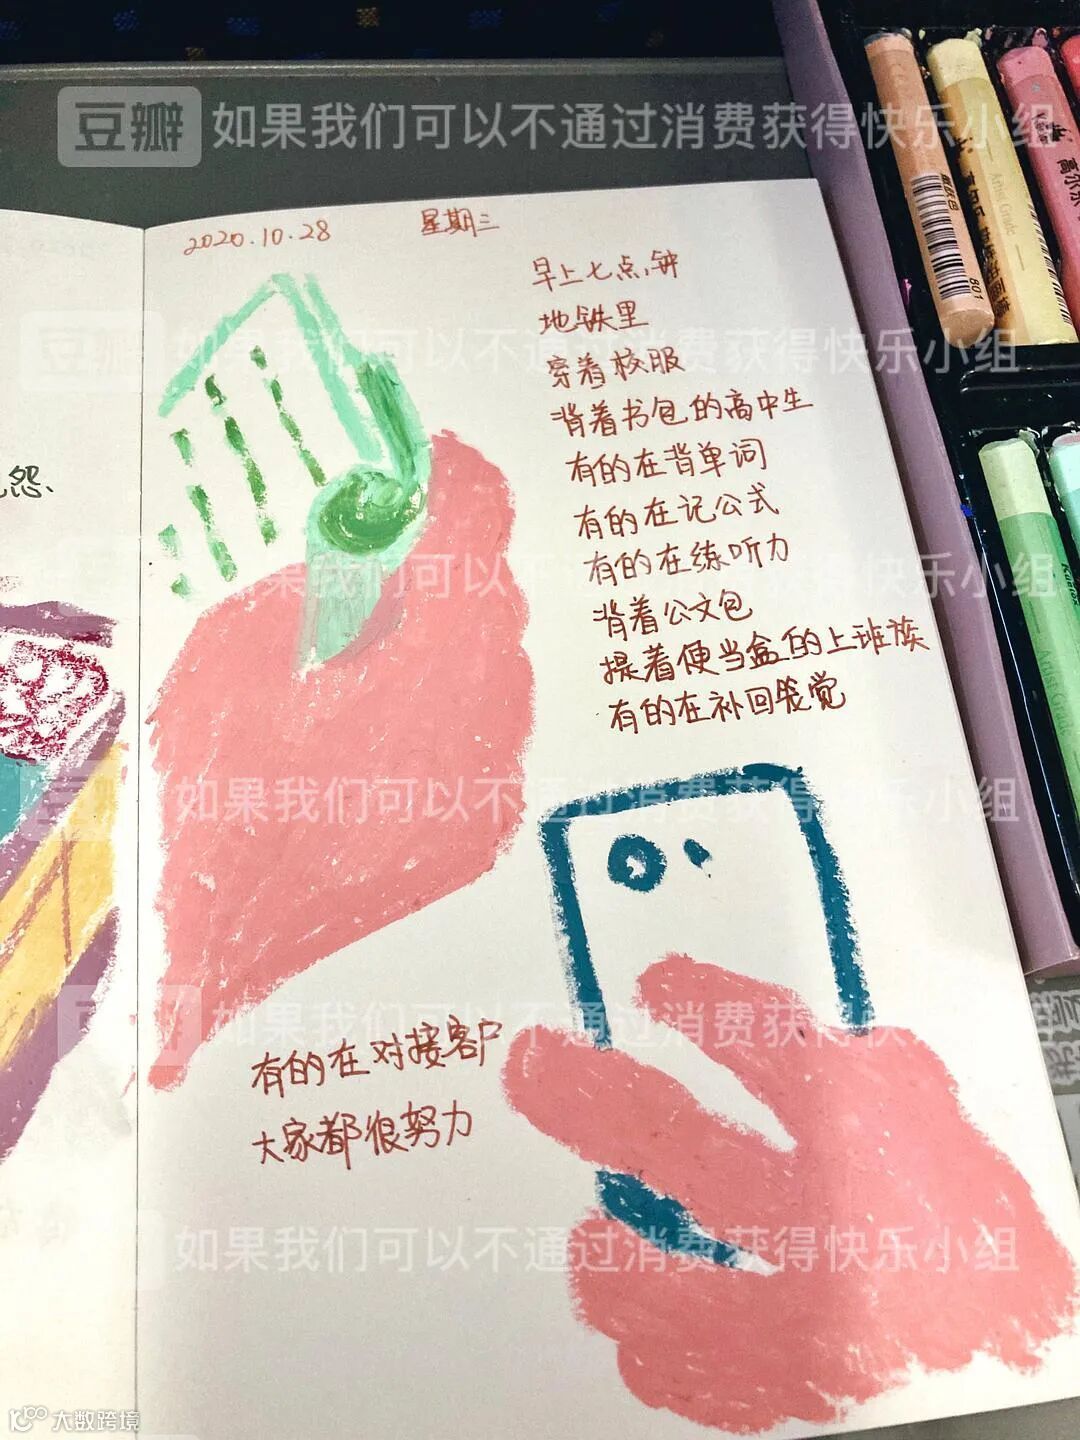 豆瓣 如果我们可以不通过消费获得快乐小组
2020.10.28 星期三
早上七点钟
地铁里
穿着校服
背着书包的高中生
有的在背单词
有的在记公式
有的在练听力
背着公文包
提着便当盒的上班族
有的在补回笼觉
有的在对接客户
大家都很努力
怨、
豆瓣 如果我们可以不通过消费获得快乐小组
豆瓣 如果我们可以不通过消费获得快乐小组
豆瓣 如果我们可以不通过消费获得快乐小组
豆瓣 如果我们可以不通过消费获得快乐小组
豆瓣 如果我们可以不通过消费获得快乐小组
Artist Grade
801
大数跨境